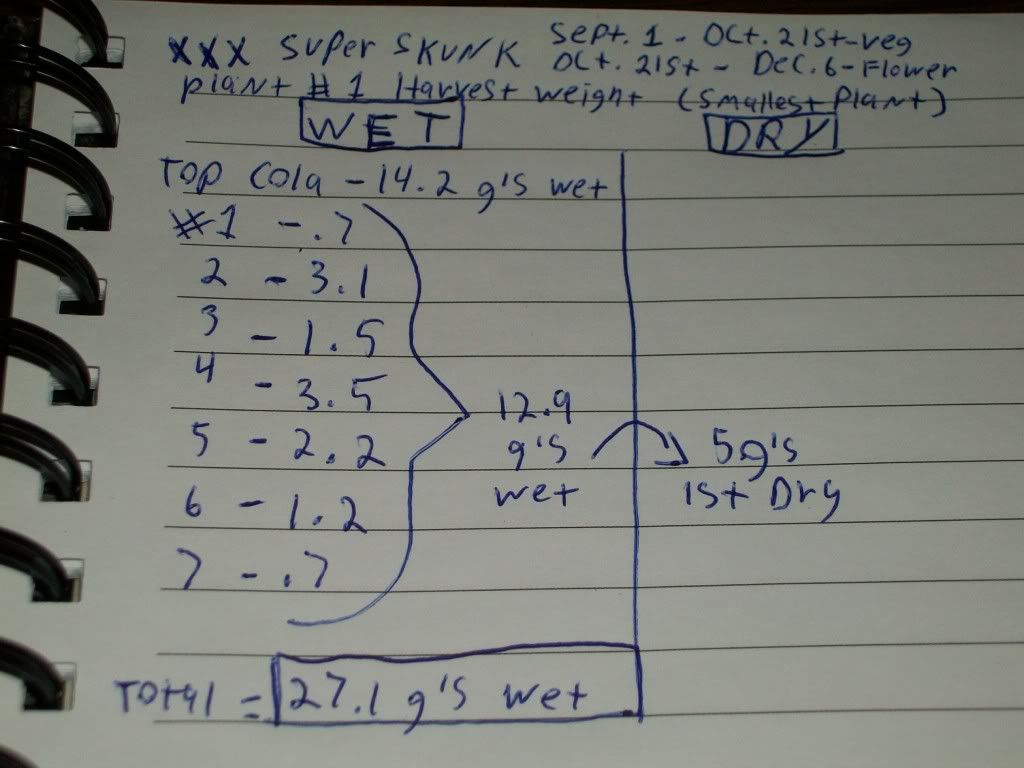 XXX Super Skunk Sept. 1 - Oct. 21st - veg
Oct. 21st - Dec. 6 - Flower
plant # 1 Harvest weight (Smallest Plant)
WET DRY
Top Cola - 14.2 g's wet
#1 - .7
2 - 3.1
3 - 1.5
4 - 3.5
5 - 2.2
6 - 1.2
7 - .7
12.9
g's
wet
5g's
1st Dry
Total = 27.1 g's wet